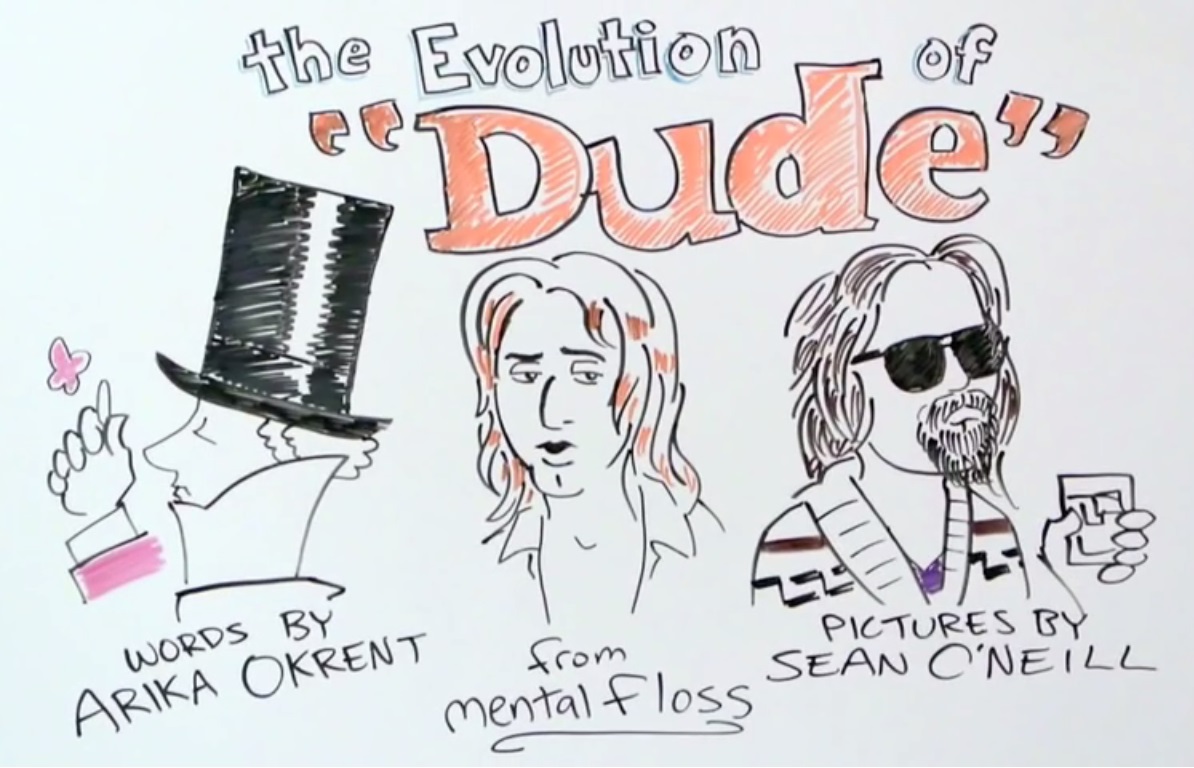 the Evolution of
“Dude”
WORDS BY
ARIKA OKRENT
from
mental floss
PICTURES BY
SEAN O'NEILL